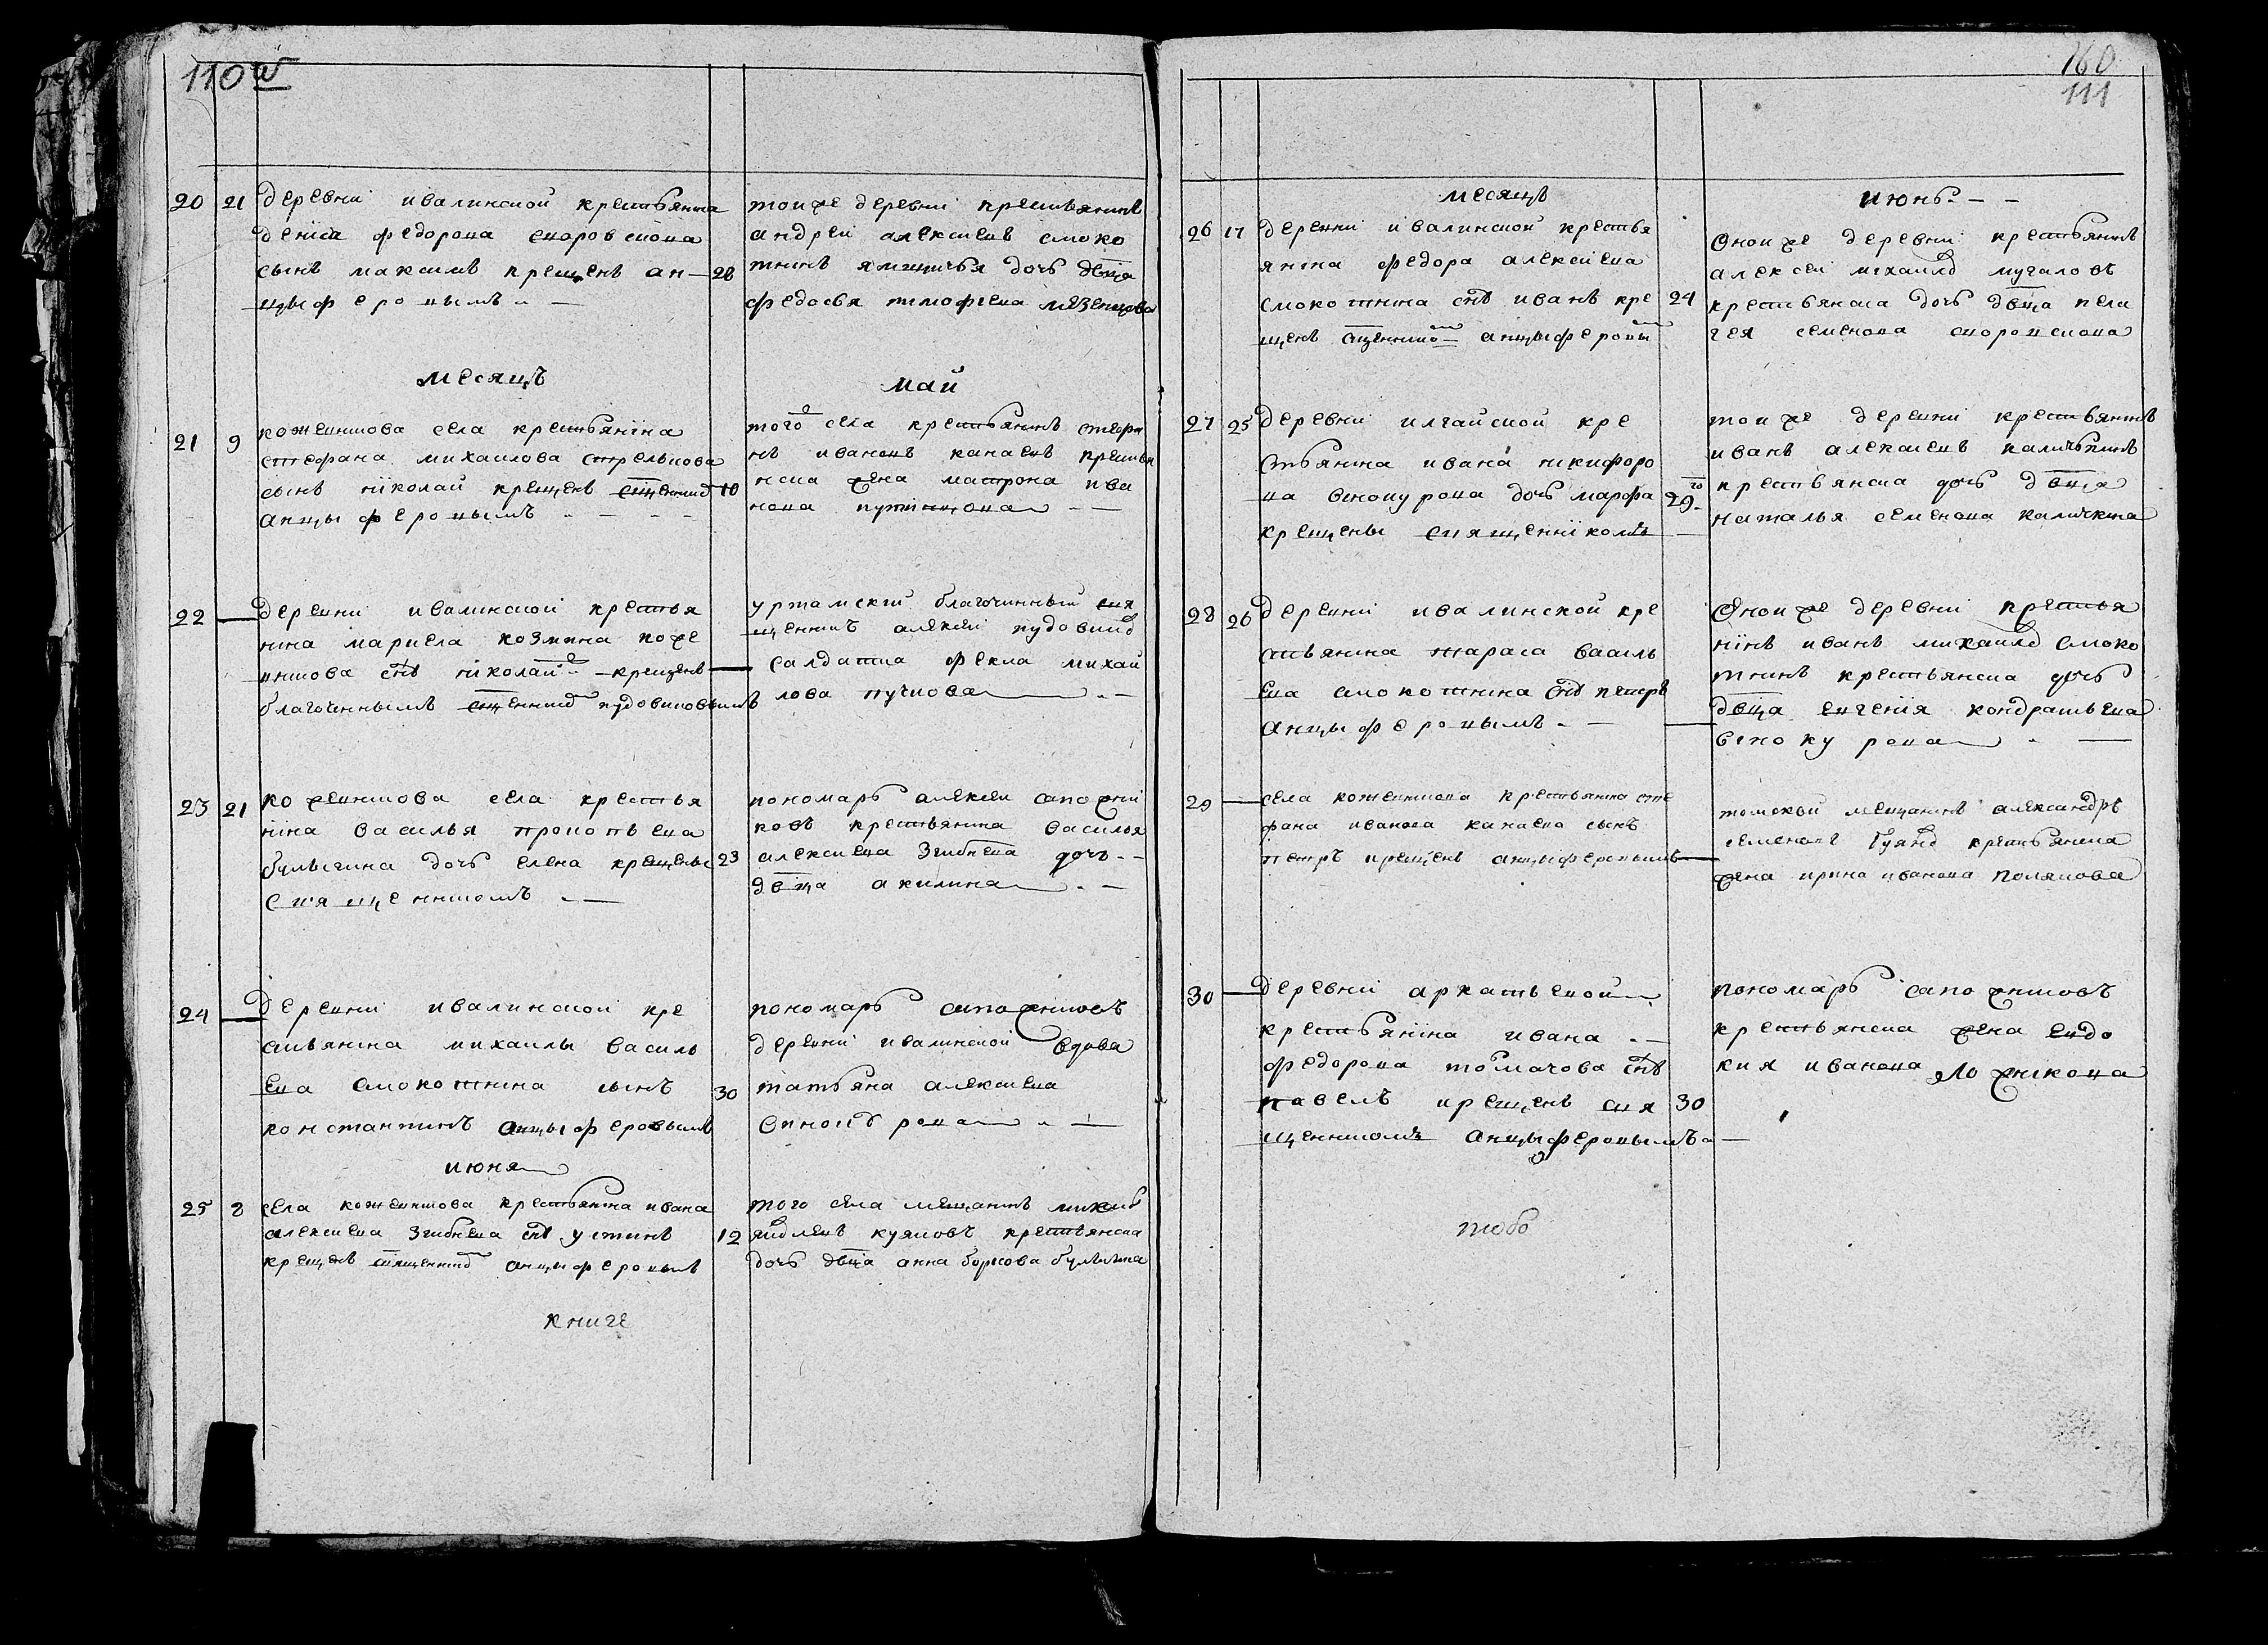 110 об
20 21 деревни ивалинской крестьянина
дениса федорова скоровскова
сынъ максимъ крещенъ ан
цыферовымъ
28
тойже деревни крестьянинъ
андреи алексеевъ смоко
тнинъ ямщичья дочь двца
федосья тимофеева мезенцова
месяцъ май
21 9 кожевникова села крестьянина
стефана михаилова стрельнова
сынъ николаи крещенъ сщенникό
анцыферовымъ
10
того села крестьянинъ стефа
нъ ивановъ канаевъ крестья
нска жена матрона ива
нова
22 деревни ивалинской крестья
нина козмина коже
вникова снъ николай крещенъ
благочиннымъ сщенникό пудовиковымъ
уртамский благочинный свя
щенникъ алексеи пудовикό
салдатка фекла михаи
лова пучкова
23 21 кожевникова села крестья
нина василья прокопьева
булыгина дочь елена крещены
священникомъ
23
пономарь алексеи сапожни
ковъ крестьянина василья
алексеева згибнева дочь
двца акилина
24 деревни ивалинской кре
стьянина михаилы василь
ева смокотнина сынъ
константинъ анцыферовымъ
30
пономарь сапожниковъ
деревни ивалинской вдова
татьяна алексеева
винокурова
июня
25 8 села кожевникова крестьянина ивана
алексеева згибнева снъ устинъ
крещенъ священникό анцыферовымъ
12
того села мещанинъ
яковлевъ куяковъ крестьянска
дочь двца анна борисова булыгина
книге
160
111
месяцъ июнь
26 17 деревни ивалинской крестья
янина федора алексеева
смокотнина снъ иванъ кре
щенъ сщенникомъ анцыферовы
24
оноиже деревни крестьянинъ
алексеи михаило мугаловъ
крестьянска дочь двца пела
гея семенова скоровскова
27 25 деревни илгайской кре
стьянина ивана никифоро
ва винокурова дочь марфа
крещены священникомъ
29
тоиже деревни крестьянинъ
иванъ алексеевъ каличкинъ
крестьянска дочь двца
наталья семенова каличкина
28 26 деревни ивалинской кре
стьянина тараса василь
ева смокотнина снъ петръ
анцыферовымъ
оноиже деревни крестья
нинъ иванъ михаило смоко
тнинъ крестьянска дочь
двца евгения кондратьева
винокурова
29 села кожевникова крестьянина сте
фана иванова канаева сынъ
петръ крещенъ анцыферовымъ
томскои мещанинъ александръ
семеновъ крестьянска
жена ирина иванова полякова
30 деревни аркатьской
крестьянина ивана
федорова томачова снъ
павелъ крещенъ свя
щенникомъ анцыферовымъ
30
пономарь сапожниковъ
крестьянска жена евдо
кия иванова ложникова